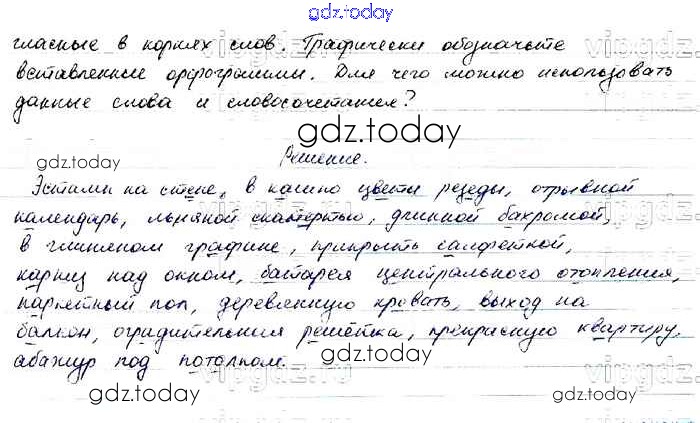 gdz.today
гласные в корнях слов. Графически обозначьте
вставленные орфограммы. Для чего можно использовать
данные слова и словосочетания?
gdz.today
gdz.today
Решение.
Эстамп на стене, в кашпо цветы резеды, отрывной
календарь, льняной скатертью, длинной бахромой,
в глиняном графине, прикрыть салфеткой,
карниз над окном, батарея центрального отопления,
паркетный пол, деревянную кровать, выход на
балкон, оградительная решётка, прекрасную квартиру,
абажур под потолком.
gdz.today
gdz.today